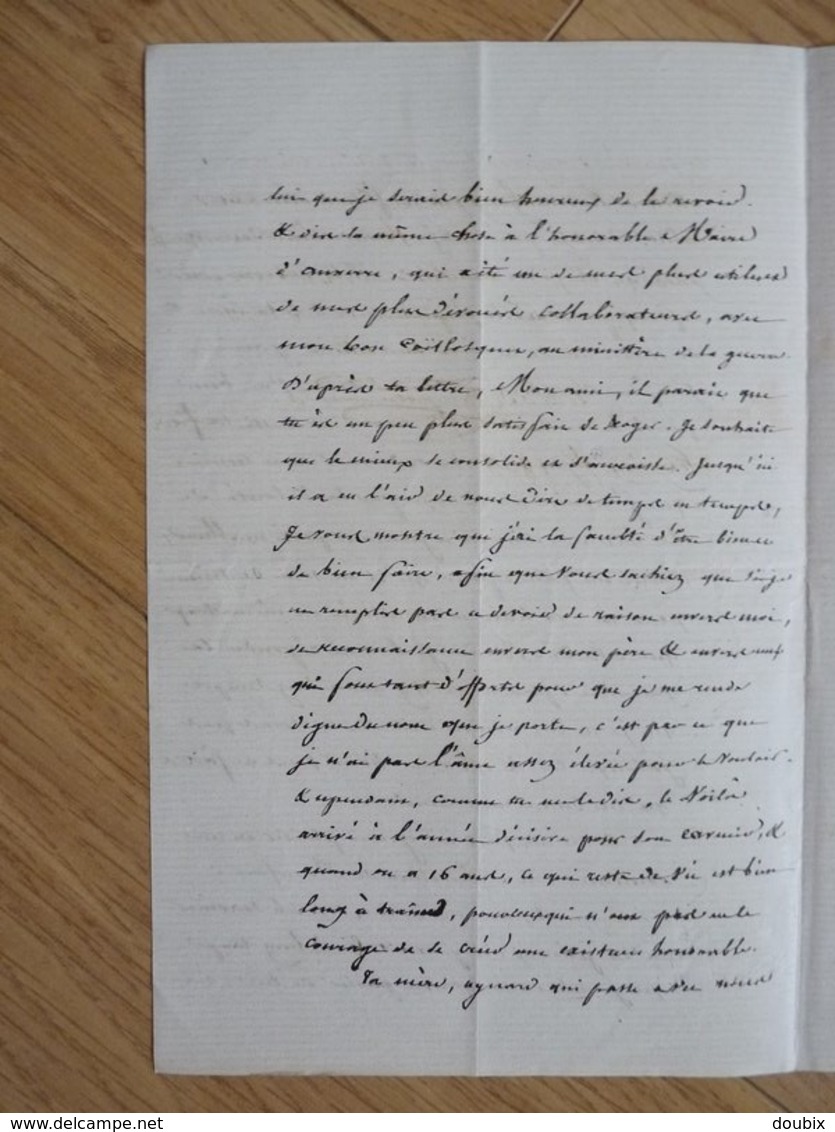 lui que je serais bien heureux de le revoir.
& dis la même chose à l'honorable Maire
d'auxerre, qui a été un de mes plus utiles
de mes plus dévoués collaborateurs, avec
mon bon Coëtlosquet, au ministère de la guerre.
D'après ta lettre, Mon ami, il parait que
tu es un peu plus satisfait de Roger. Je souhaite
que le mieux se consolide et s'accroisse. Jusqu'ici
il a eu l'air de nous dire de temps en temps,
Je vous montre que j'ai la faculté d'être bien et
de bien faire, afin que vous sachiez que si je
ne remplis pas ce devoir de raison envers moi,
de reconnaissance envers mon père & envers ceux
qui font tant d'efforts pour que je me rende
digne du nom que je porte, c'est par ce que
je n'ai pas l'âme assez élevée pour le vouloir.
& cependant, comme tu me le dis, le voilà
arrivé à l'année décisive pour son avenir, &
quand on a 16 ans, ce qui reste de vie est bien
long à traîner, pour ceux qui n'ont pas eu le
courage de se créer une existence honorable.
Ta mère, aynard qui passe avec nous
doubix